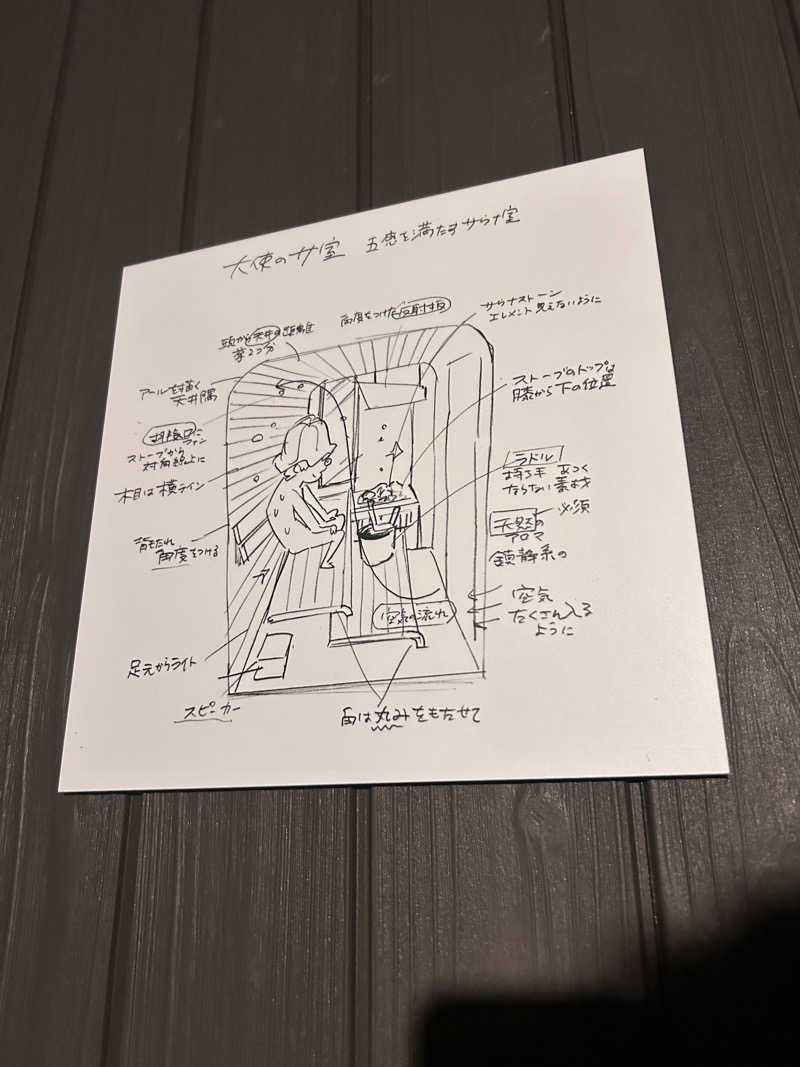 大使のサ室 五感を満たすサウナ室
頭から天井の距離
拳2つ分
角度をつけた反射板
サウナストーン
エレメント見えないように
アールを描く
天井隅
ストーブのトップは
膝から下の位置
排気口に
ファン
ストーブから
対角線上に
ラドル
持ち手 あつく
ならない素材
木目は横ライン
必須
天然の
アロマ
鎮静系の
背もたれ
角度をつける
空気の流れ
空気
たくさん入る
ように
足元からライト
スピーカー
角は丸みをもたせて